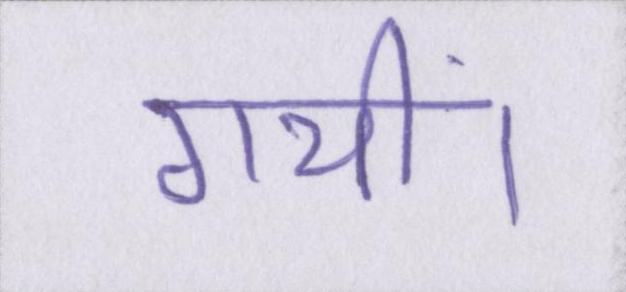 गयीं।